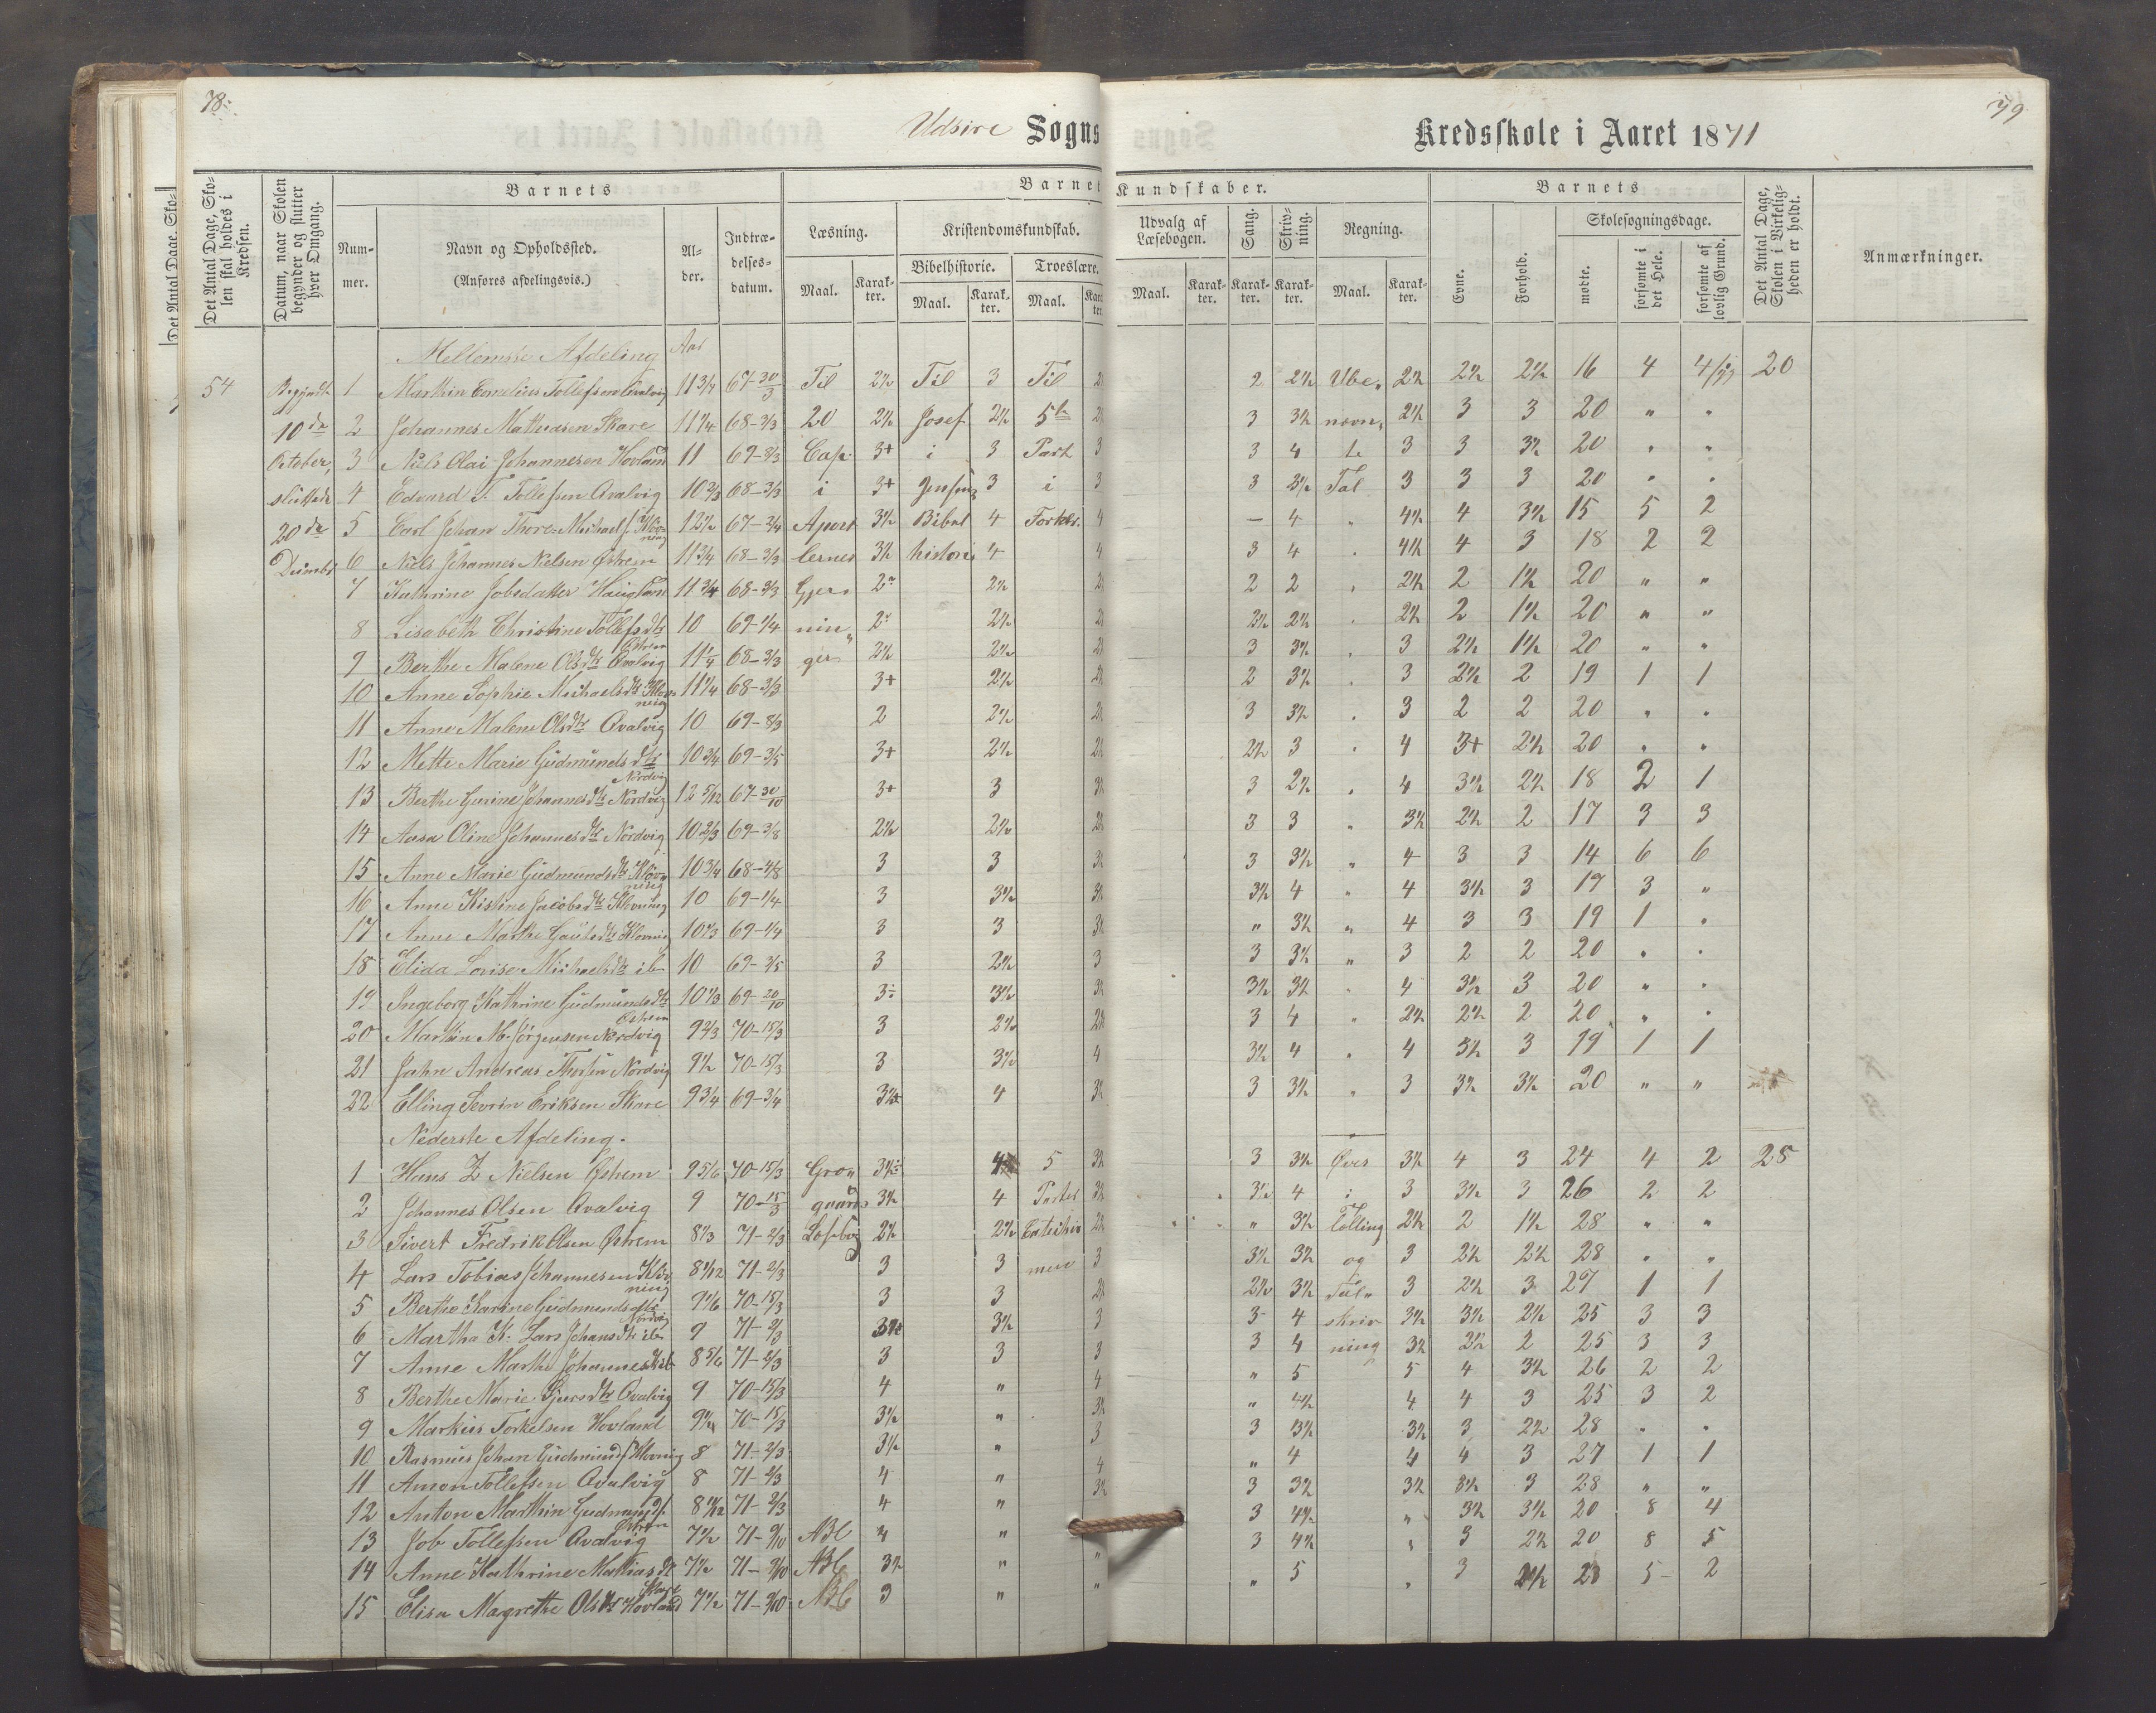 78.
Udsire Sogns
Kredsskole i Aaret 1871
79
Det Antal Dage, Skolen skal holdes i Kredsen.
Datum, naar Skolen begynder og slutter hver Omgang.
Barnets
Barnets Kundskaber.
Barnets
Det Antal Dage, Skolen i Virkeligheden er holdt.
Anmærkninger.
Nummer.
Navn og Opholdssted.
(Anføres afdelingsvis.)
Alder.
Indtrædelsesdatum.
Læsning.
Kristendomskundskab.
Udvalg af Læsebogen.
Sang.
Skrivning.
Regning.
Evne.
Forhold.
Skolesøgningsdage.
Bibelhistorie.
Troeslære.
Maal.
Karakter.
mødte.
forsømte i det Hele.
forsømte af lovlig Grund.
Mellemste Afdeling Aar
54 Begyndte 1 Marthin Cornelius Tollefsen Qvalvig 11 3/4 67-30/3 Til 2½ Til 3 Til 2 2½ Ube„ 2½ 2½ 2½ 16 4 20
10de 2 Johannes Mathiasen Skare 11 1/4 68-3/3 20 2½ Josef 2½ 5te 3 3½ nævn„ 2½ 3 3 20 „ „
October, 3 Niels Olai Johannesen Hovland 11 69-8/3 Cap. 3+ i 3 Part 3 3 4 te 3 3 3½ 20 „ „
sluttede 4 Edvard T. Tollefsen Qvalvig 10 2/3 68-3/3 i 3+ Jensens 3 i 3 3 3½ Tal 3 3 3 20 „ „
20de 5 Carl Johan Thore Michaels. Klovning 12½ 67-2/4 Apost 3½ Bibel 4 Forklr. 4 - 4 „ 4½ 4 3½ 15 5 2
Decembr 6 Niels Johannes Nielsen Østrem 11 3/4 68-3/3 lernes 3½ historie 4 4 3 4 „ 4½ 4 3 18 2 2
7 Kathrine Jobsdatter Haugland 11 3/4 68-3/3 Gjer„ 2 2½ 2 2 „ 2½ 2 1½ 20 „ „
8 Lisabeth Christine Tollefsdtr Østrem 10 69-1/4 nin„ 2 2½ 2½ 2½ „ 2½ 2 1½ 20 „ „
9 Berthe Malene Olsdtr Qvalvig 11 1/4 68-3/3 ger 2½ 2½ 3 3½ „ 3 2½ 1½ 20 „ „
10 Anne Sophie Michaelsdtr Klovning 11 1/4 68-3/3 3+ 2½ 2 3½ „ 3 2½ 2 19 1 1
11 Anne Malene Olsdtr Qvalvig 10 69-8/3 2 2½ 3 3½ „ 3 2 2 20 „ „
12 Mette Marie Gudmundsdtr Nordvig 10 3/4 69-3/5 3+ 2½ 2½ 3 „ 4 3+ 2½ 20 „ „
13 Berthe Gurine Johannesdtr Nordvig 12 5/12 67-30/10 3+ 3 3 2½ „ 4 3½ 2½ 18 2 1
14 Aasa Oline Johannesdtr Nordvig 10 2/3 69-3/8 2½ 2½ 3 3 „ 3½ 2½ 2 17 3 3
15 Anne Marie Gudmundsdtr Klovning 10 3/4 68-4/8 3 3 3 3½ „ 4 3 3 14 6 6
16 Anne Kistine Jacobsdtr Klovning 10 69-1/4 3 3½ 3½ 4 „ 4 3½ 3 17 3 „
17 Anne Marthe Gautesdtr Klovning 10 1/3 69-1/4 3 3 „ 3½ „ 4 3 3 19 1 „
18 Elida Lovise Michaelsdtr ib 10 69-3/5 3 2½ 3 3 3½ „ 3 2 2 20 „ „
19 Ingeborg Kathrine Gudmundsdtr Østrem 10 1/3 69-20/10 3 3½ 3½ 3½ „ 4 3½ 3 20 „ „
20 Marthin M. Jörgensen Nordvig 9 2/3 70-15/3 3 2½ 3 4 „ 2½ 2½ 2 20 „ „
21 John Andreas Thorsen Nordvig 9½ 70-15/3 3 3½ 4 3½ 4 „ 4 3½ 3 19 1 1
22 Elling Severin Eriksen Skare 9 3/4 69-3/4 4 3 3½ „ 3 3½ 3½ 20 „ „
Nederste Afdeling.
1 Hans Z Nielsen Østrem 9 5/6 70-15/3 Gro„ 5 3 3½ Øves 3½ 4 3 24 4 2 28
2 Johannes Olsen Qvalvig 9 70-15/3 gaards 3½ 4 Parter 3½ 4 i 3 3½ 3 26 2 2
3 Sivert Fredrik Olsen Østrem 8 1/3 71-2/3 Læsebog 2½ 2½ „ 3½ Tælling 2½ 2 1½ 28 „ „
4 Lars Tobias Johannesen Klovning 8 1/12 71-2/3 3 3 3 3½ 3½ og 3 2½ 2½ 28 „ „
5 Berthe Karine Gudmundsdtr Nordvig 9 1/6 70-15/3 3 3 2½ 3½ Tal„ 3 2½ 3 27 1 1
6 Martha K. Lars Johansdtr ib 9 71-2/3 3½ 3 3 4 skriv 3½ 3½ 2½ 25 3 3
7 Anne Marthe Johannesdtr ib 8 5/6 71-2/3 3 3 3 3 4 ning 3½ 2½ 2 25 3 3
8 Berthe Marie Sjursdtr Qvalvig 9 70-15/3 4 „ 4 „ 5 5 4 3½ 26 2 2
9 Markus Torkelsen Hovland 70-15/3 3½ „ 3½ „ 4½ 4 4 3 25 3 2
10 Rasmus Johan Gudmunds. Klovning 8 71-2/3 3½ „ 3 3 3½ 3½ 3 2½ 28 „ „
11 Amon Tollefsen Qvalvig 8 71-2/3 4 „ 4 „ 4 4 4 3 27 1 1
12 Anton Marthin Gudmunds. Østrem 8 11/12 71-2/3 4 „ 3½ 3 3½ 3½ 3½ 3 28 „ „
13 Job Tollefsen Qvalvig 7½ 71-9/10 ABC 4 „ 3 4½ „ 3½ 3½ 20 8 4
14 Anne Kathrine Mathiasdtr Skare 7½ 71-9/10 ABC 3½ „ „ 3 4½ „ 3 2½ 20 8 5
15 Elisa Magrethe Olsdtr Hovland 7½ 71-9/10 ABC 3 „ „ „ 5 „ 3 2½ 23 5 2